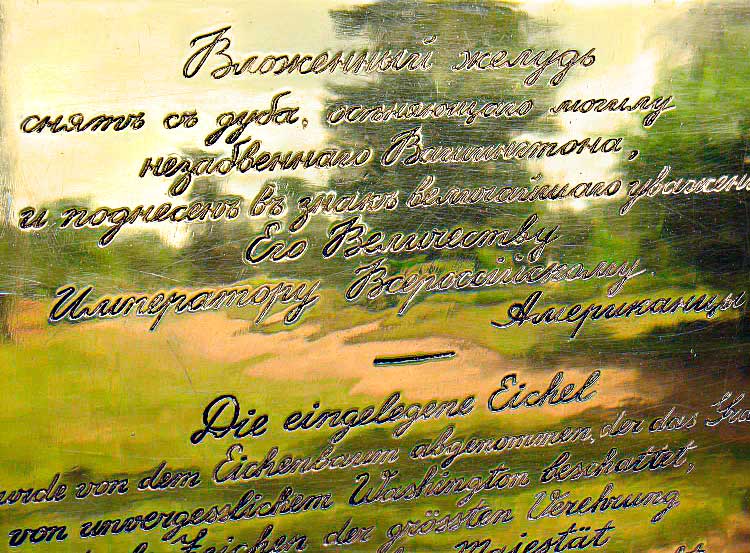 Вложенный желудь
снятъ съ дуба, осѣняющаго могилу
незабвеннаго Вашингтона,
и поднесенъ въ знакъ величайшаго уважен
Его Величеству
Императору Всероссійскому
Американцы
Die eingelegene Eichel
wurde von dem Eichenbaum abgenommen, der das
von unvergesslichem Washington beschattet,
Zeichen der grössten Verehrung
Majestät